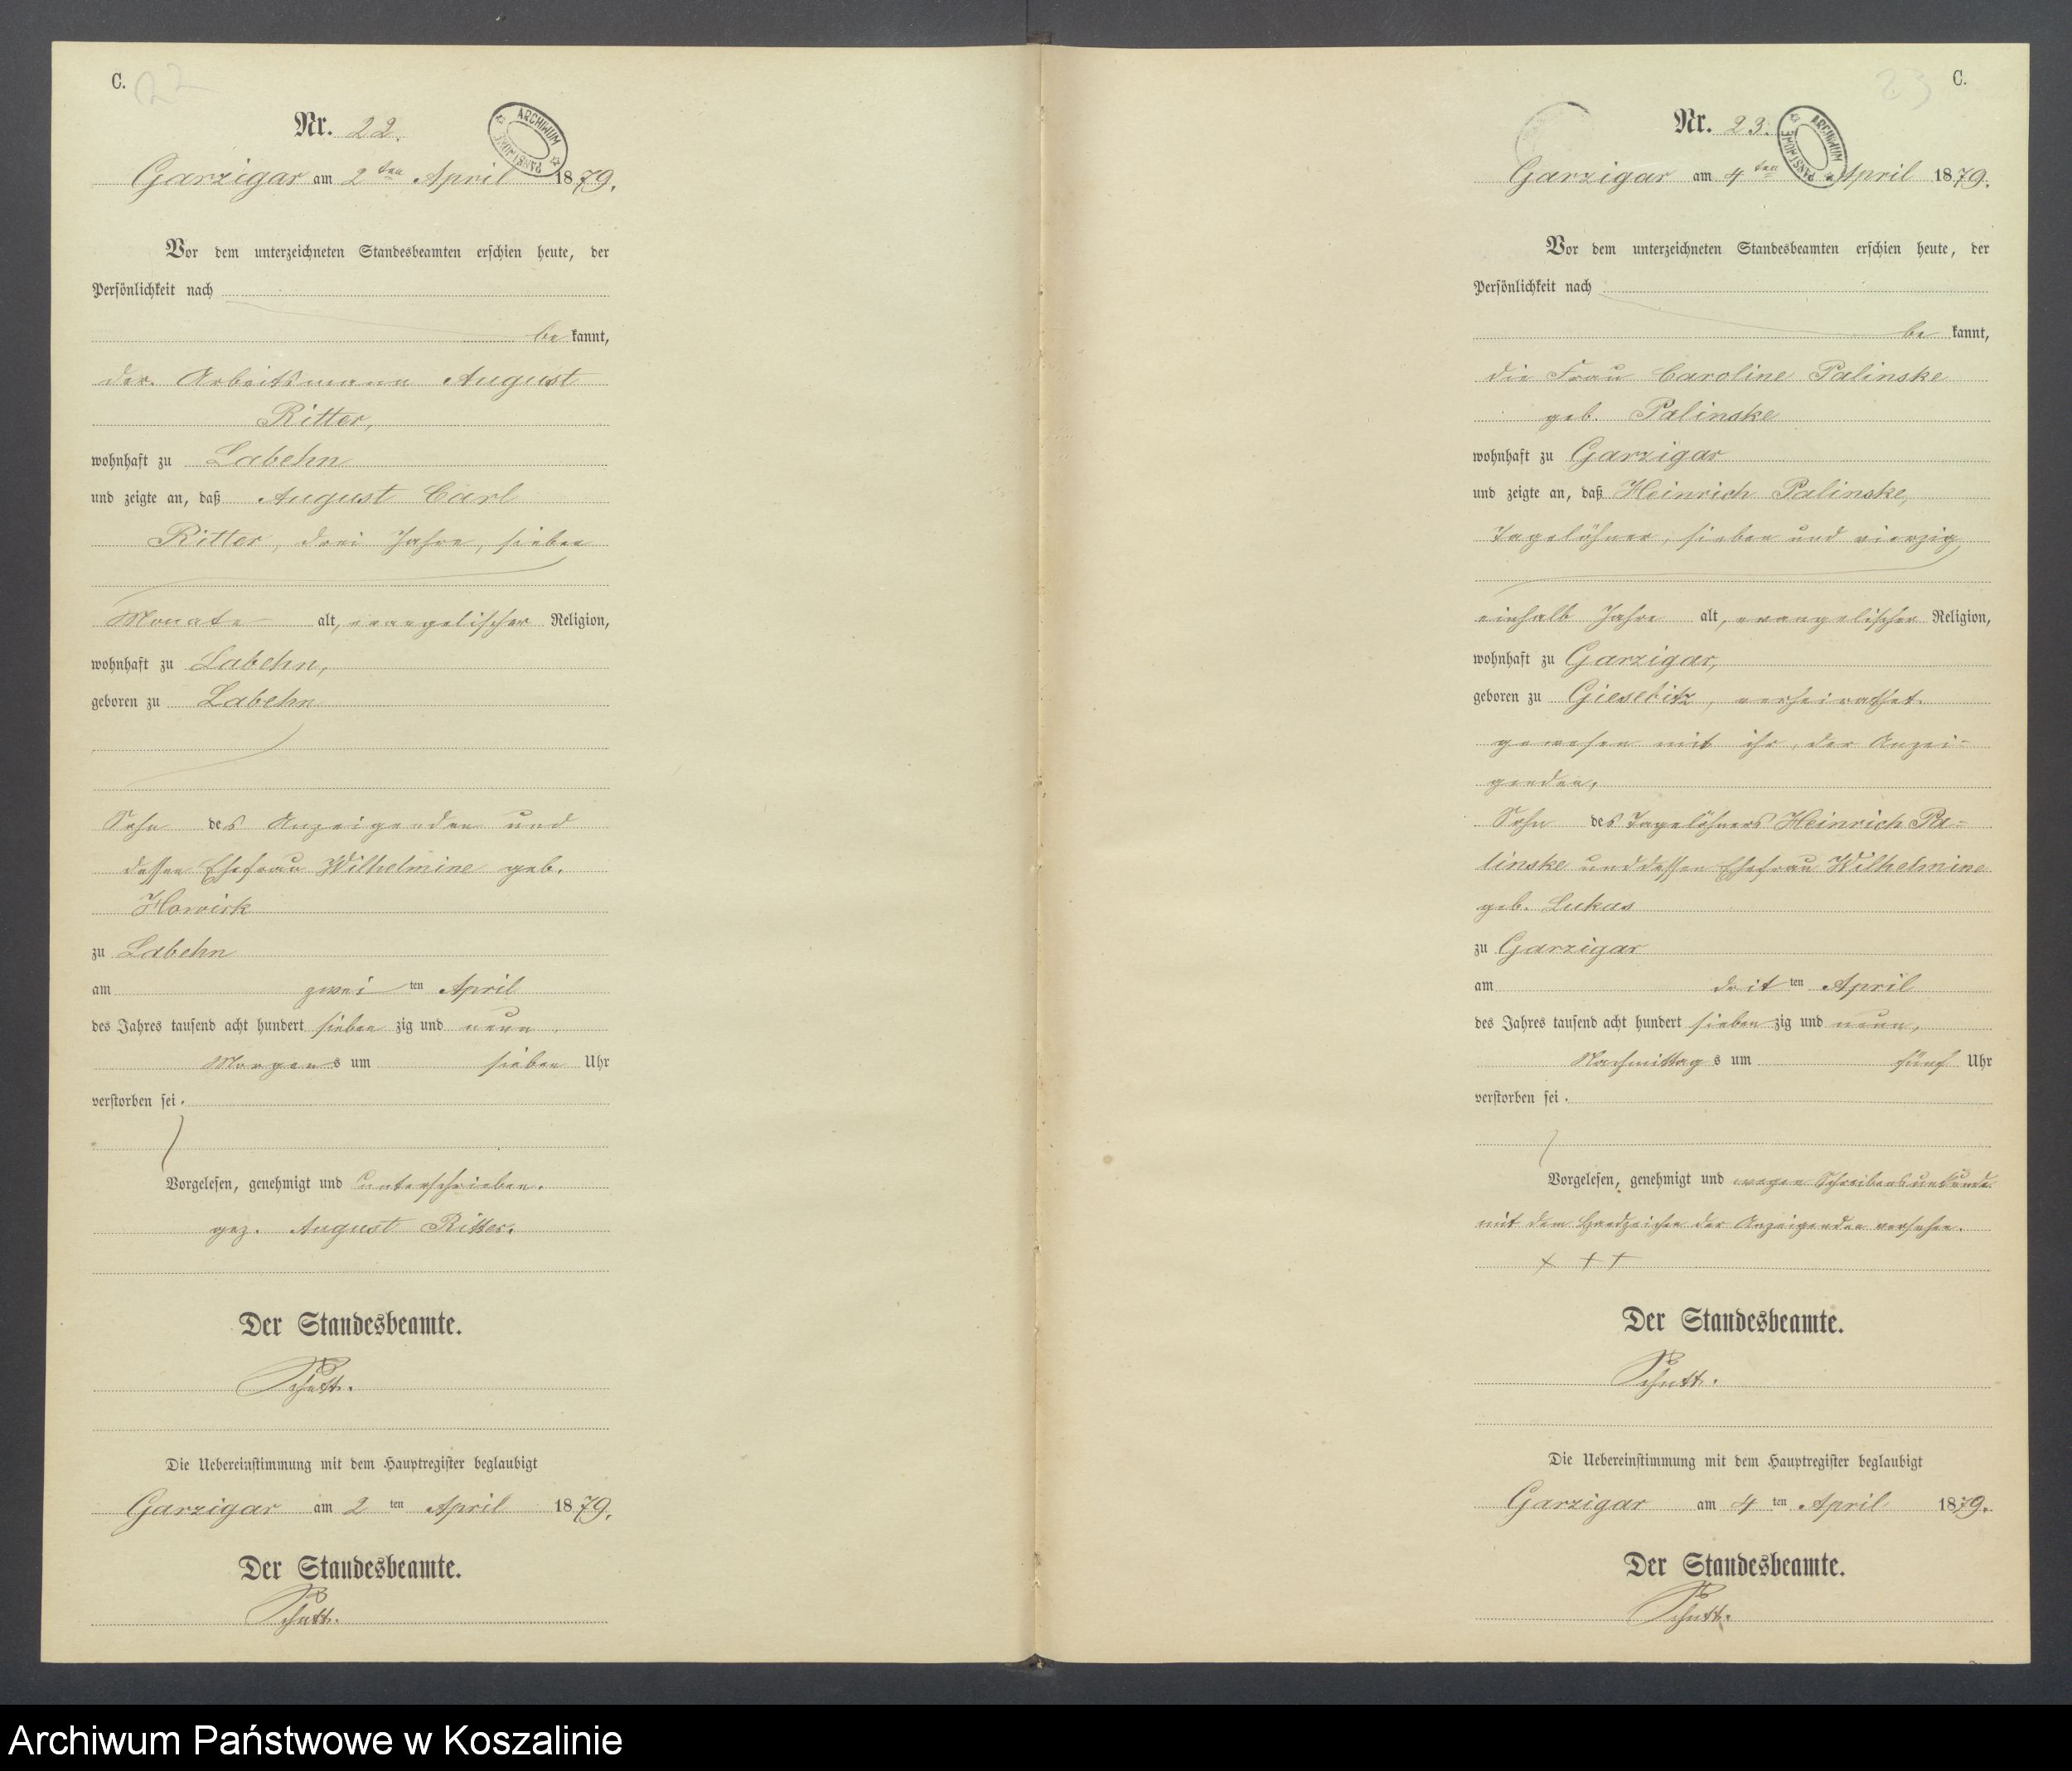 C.
22
Nr. 22.
ARCHIWUM PAŃSTWOWE
Garzigar am 2ten April 1879.
Vor dem unterzeichneten Standesbeamten erschien heute, der
Persönlichkeit nach
bekannt,
der Arbeitsmann August
Ritter,
wohnhaft zu Labehn
und zeigte an, daß August Carl
Ritter, drei Jahre, sieben
Monate alt, evangelischer Religion,
wohnhaft zu Labehn,
geboren zu Labehn
Sohn des Anzeigenden und
dessen Ehefrau Wilhelmine geb.
zu Labehn
am zweiten April
des Jahres tausend acht hundert siebenzig und neun,
Morgens um sieben Uhr
verstorben sei.
Vorgelesen, genehmigt und unterschrieben.
gez. August Ritter.
Der Standesbeamte.
Die Uebereinstimmung mit dem Hauptregister beglaubigt
Garzigar am 2ten April 1879.
Der Standesbeamte.
C.
23
Nr. 23.
ARCHIWUM PAŃSTWOWE
Garzigar am 4ten April 1879.
Vor dem unterzeichneten Standesbeamten erschien heute, der
Persönlichkeit nach
bekannt,
die Frau Caroline Palinske
geb. Palinske
wohnhaft zu Garzigar
und zeigte an, daß Heinrich Palinske,
Tagelöhner, sieben und vierzig
einhalb Jahre alt, evangelischer Religion,
wohnhaft zu Garzigar,
geboren zu Giesebitz, verheirathet
gewesen mit ihr, der Anzei-
genden,
Sohn des Tagelöhners Heinrich Pa-
linske und dessen Ehefrau Wilhelmine
geb. Lukas
zu Garzigar
am dritten April
des Jahres tausend acht hundert siebenzig und neun,
Nachmittags um fünf Uhr
verstorben sei.
Vorgelesen, genehmigt und wegen Schreibensunkunde
mit dem Handzeichen der Anzeigenden versehen.
+ + +
Der Standesbeamte.
Die Uebereinstimmung mit dem Hauptregister beglaubigt
Garzigar am 4ten April 1879.
Der Standesbeamte.
Archiwum Państwowe w Koszalinie